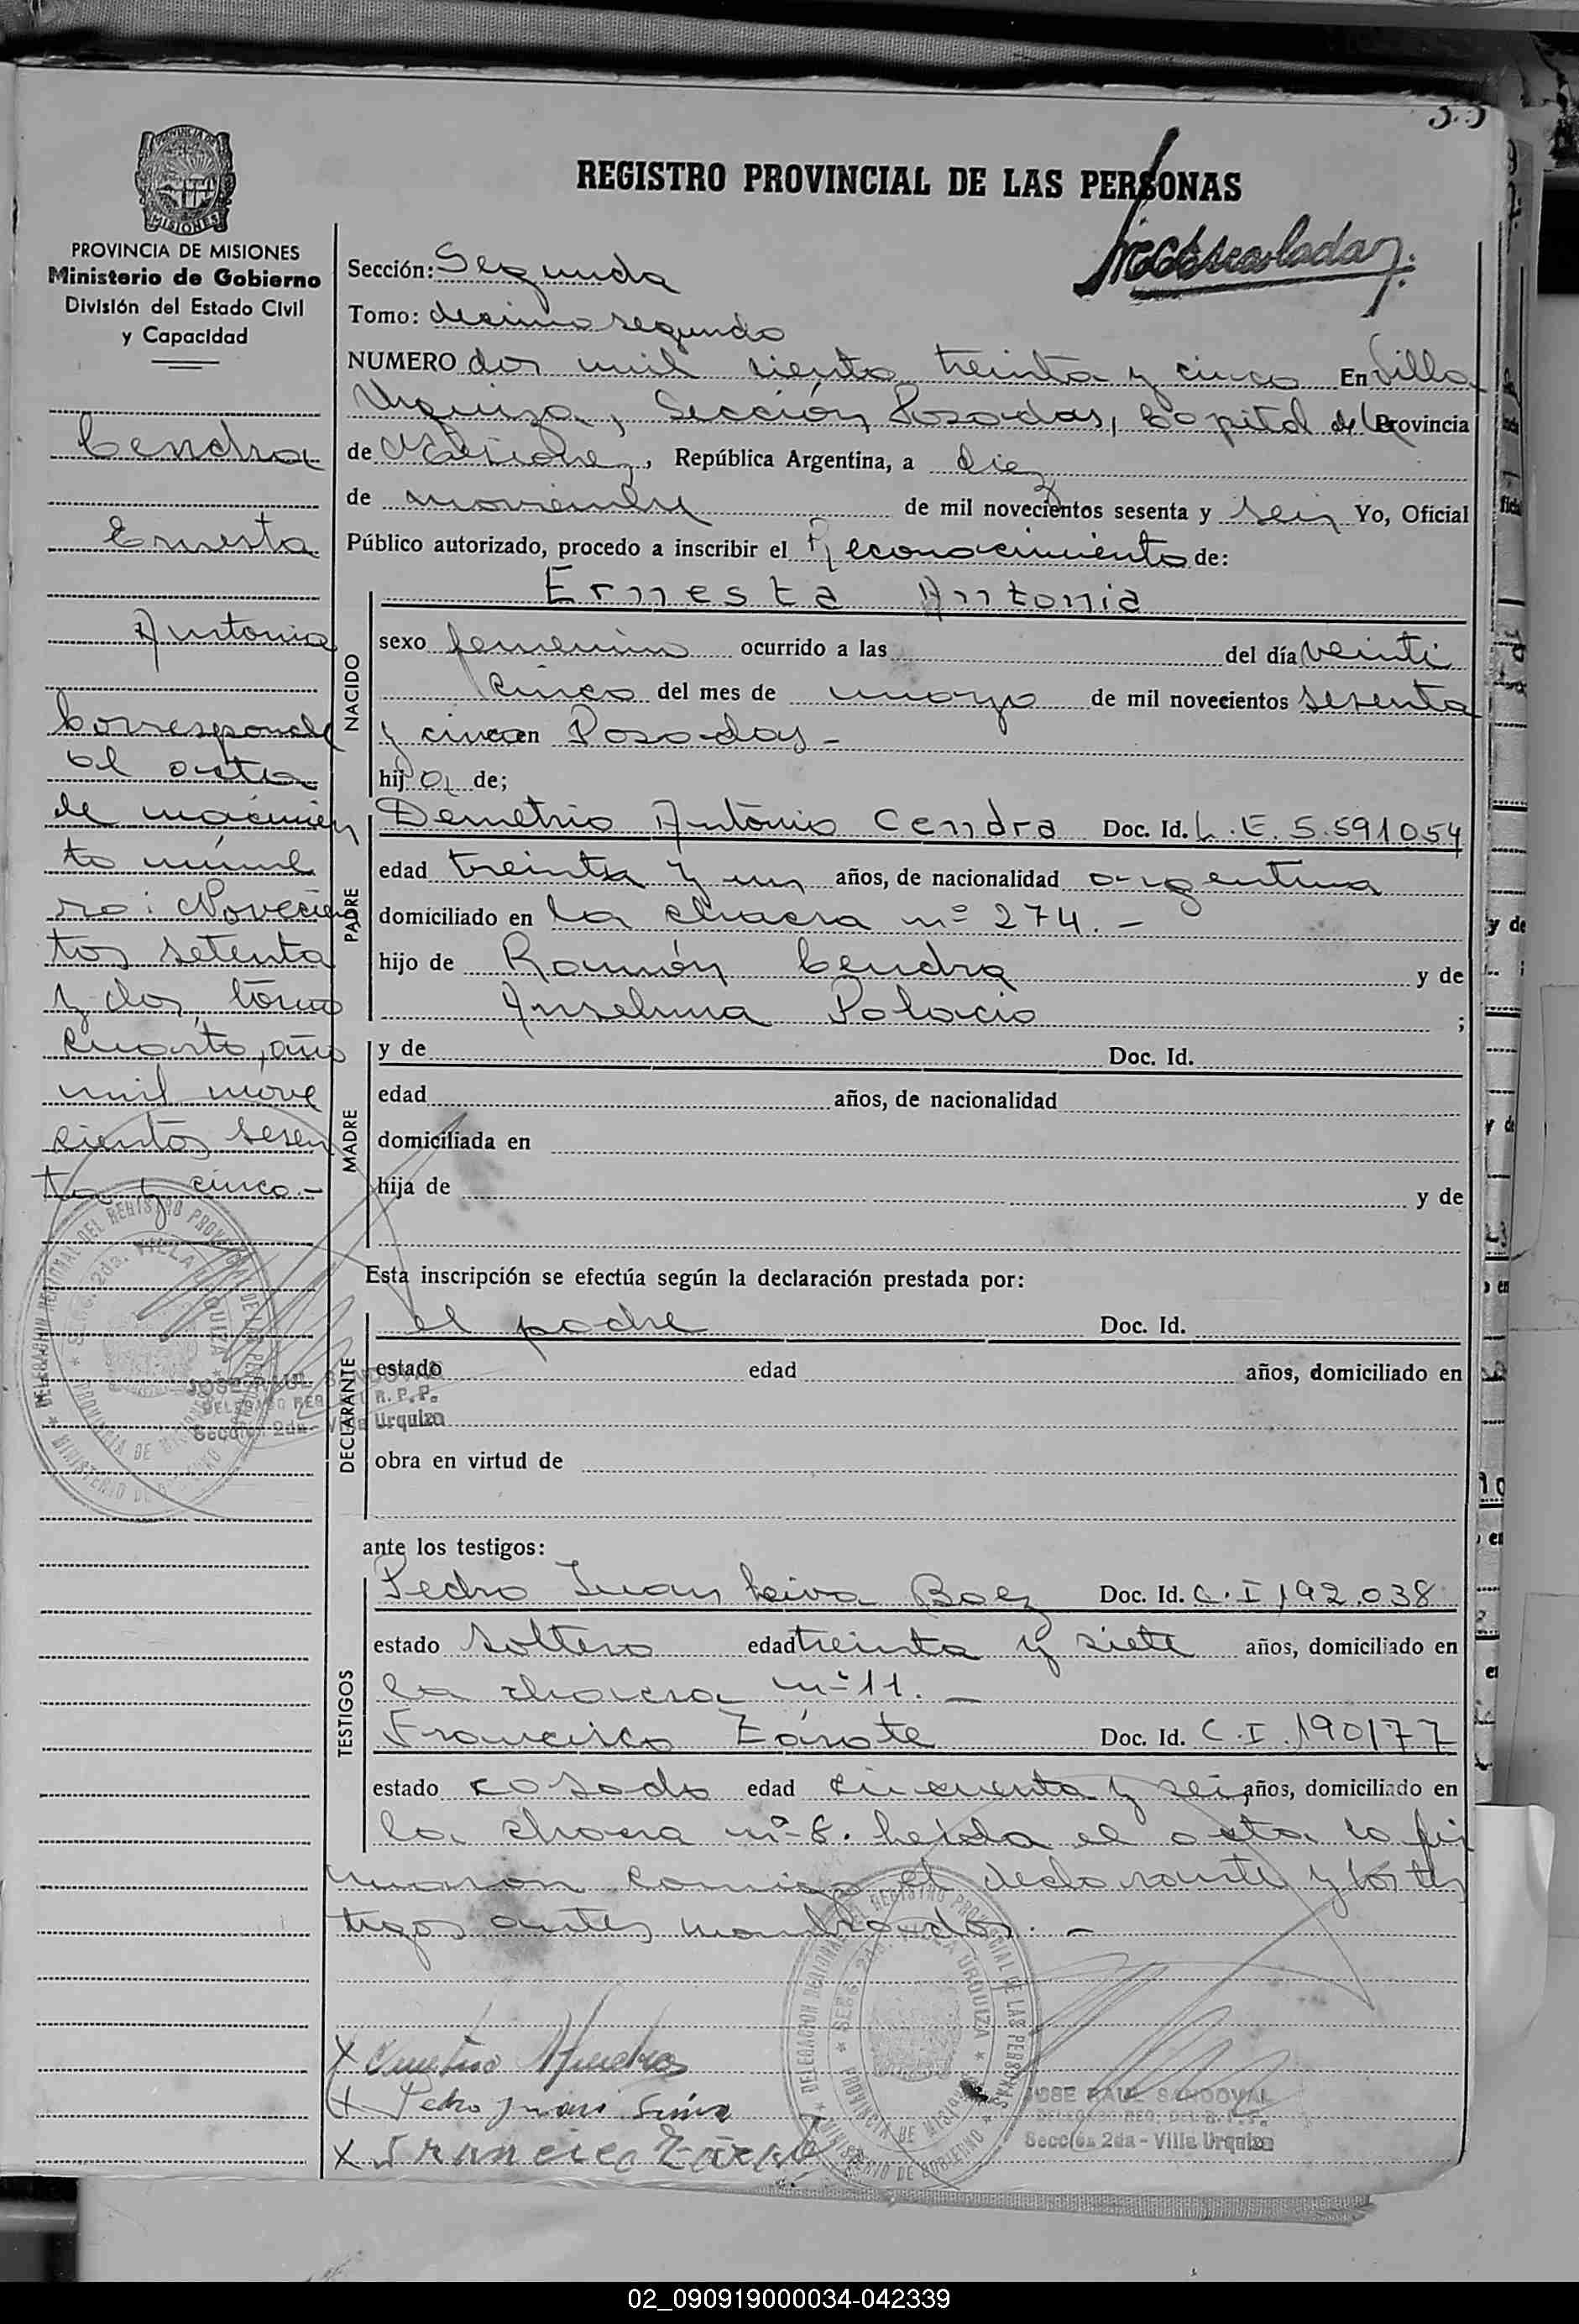 35
PROVINCIA DE
MISIONES
PROVINCIA DE MISIONES
Ministerio de Gobierno
División del Estado Civil
y Capacidad
Cendra
Ernesta
Antonia
Corresponde
al acta
de nacimien
to núme
ro: Novecien
tos setenta
y dos, tomo
cuarto, año
mil nove
cientos sesen
ta y cinco.-
REGISTRO PROVINCIAL DE LAS PERSONAS
Sección: Segunda
Tomo: decimo segundo
NUMERO dos mil ciento treinta y cinco En Villa
Urquiza, Sección Posadas, Capital de la Provincia
de Misiones, República Argentina, a diez
de noviembre de mil novecientos sesenta y seis Yo, Oficial
Público autorizado, procedo a inscribir el Reconocimiento de:
Ernesta Antonia
NACIDO
sexo femenino ocurrido a las del día veinti
cinco del mes de marzo de mil novecientos sesenta
y cinco en Posadas -
hij a de;
PADRE
Demetrio Antonio Cendra Doc. Id. L.E. 5.591054
edad treinta y un años, de nacionalidad argentina
domiciliado en la chacra nº 274. -
hijo de Ramón Cendra y de
Anselma Palacio ;
MADRE
y de Doc. Id.
edad años, de nacionalidad
domiciliada en
hija de y de
Esta inscripción se efectúa según la declaración prestada por:
DECLARANTE
el padre Doc. Id.
estado edad años, domiciliado en
obra en virtud de
JOSE RAUL SANDOVAL
DELEGADO REG. DEL R.P.P.
Sección 2da - Villa Urquiza
ante los testigos:
TESTIGOS
Pedro Juan Leiva Baez Doc. Id. C.I 192.038
estado soltero edad treinta y siete años, domiciliado en
la chacra nº 11. -
Francisco Zárate Doc. Id. C.I. 190177
estado casado edad cincuenta y seis años, domiciliado en
la chacra nº 8. Leida el acta la fir
maron conmigo el declarante y los tes
tigos antes nombrados. -
DELEGACION REGIONAL DEL REGISTRO PROVINCIAL DE LAS PERSONAS
SECC. 2da. VILLA URQUIZA
PROVINCIA DE MISIONES
MINISTERIO DE GOBIERNO
X
X Pedro Juan
X Francisco Zárate
JOSE RAUL SANDOVAL
DELEGADO REG. DEL R.P.P.
Sección 2da - Villa Urquiza
02_090919000034-042339